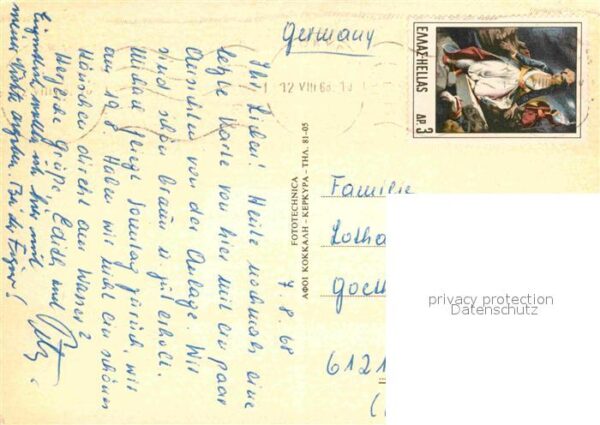 Germany
12 VIII 68
ΕΛΛΑΣ-HELLAS
ΔΡ. 3
7.8.68
Ihr Lieben! Heute nochmals eine
letzte Karte von hier mit ein paar
Ansichten von der Anlage. Wir
sind schön braun u. gut erholt.
Michael fliegt Sonntag zurück, wir
am 19.8. Haben wir nicht ein schönes
Häuschen direkt am Wasser?
Herzliche Grüße, Edith und
Eigentlich wollte ich hier mit
meiner angeben. Bei der Figur!
FOTOTECHNICA
ΑΦΟΙ ΚΟΚΚΑΛΗ - ΚΕΡΚΥΡΑ - ΤΗΛ. 81-05
Familie
Lotha
Goeth
6121
privacy protection
Datenschutz